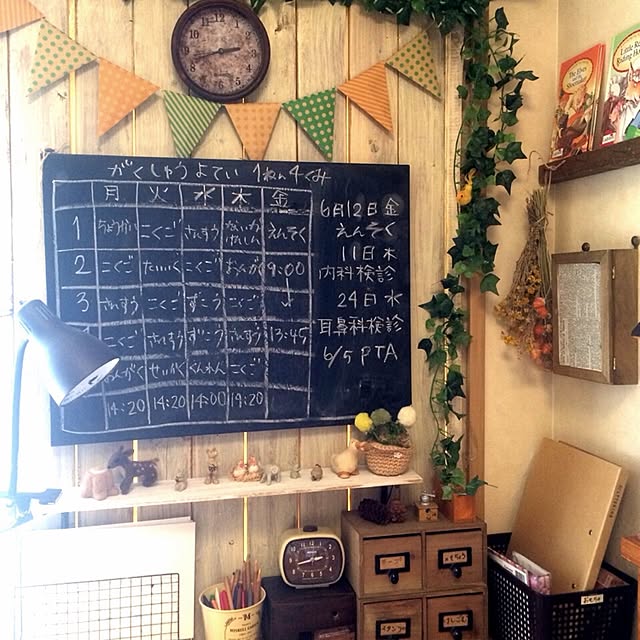 がくしゅうよてい 1ねん4くみ
月 火 水 木 金
1 ちょうかい こくご さんすう ないか けんしん えんそく
2 こくご たいいく こくご おんがく 9:00
3 さんすう こくご ずこう こくご ↓
4 こくご さんすう ずこう さんすう 13:45
おんがく せいかつ こくご
14:20 14:20 14:00 14:20
6月12日金
えんそく
11日木
内科検診
24日水
耳鼻科検診
6/5 PTA
The Elves and the Shoemaker
Riding Hood
おもちゃ